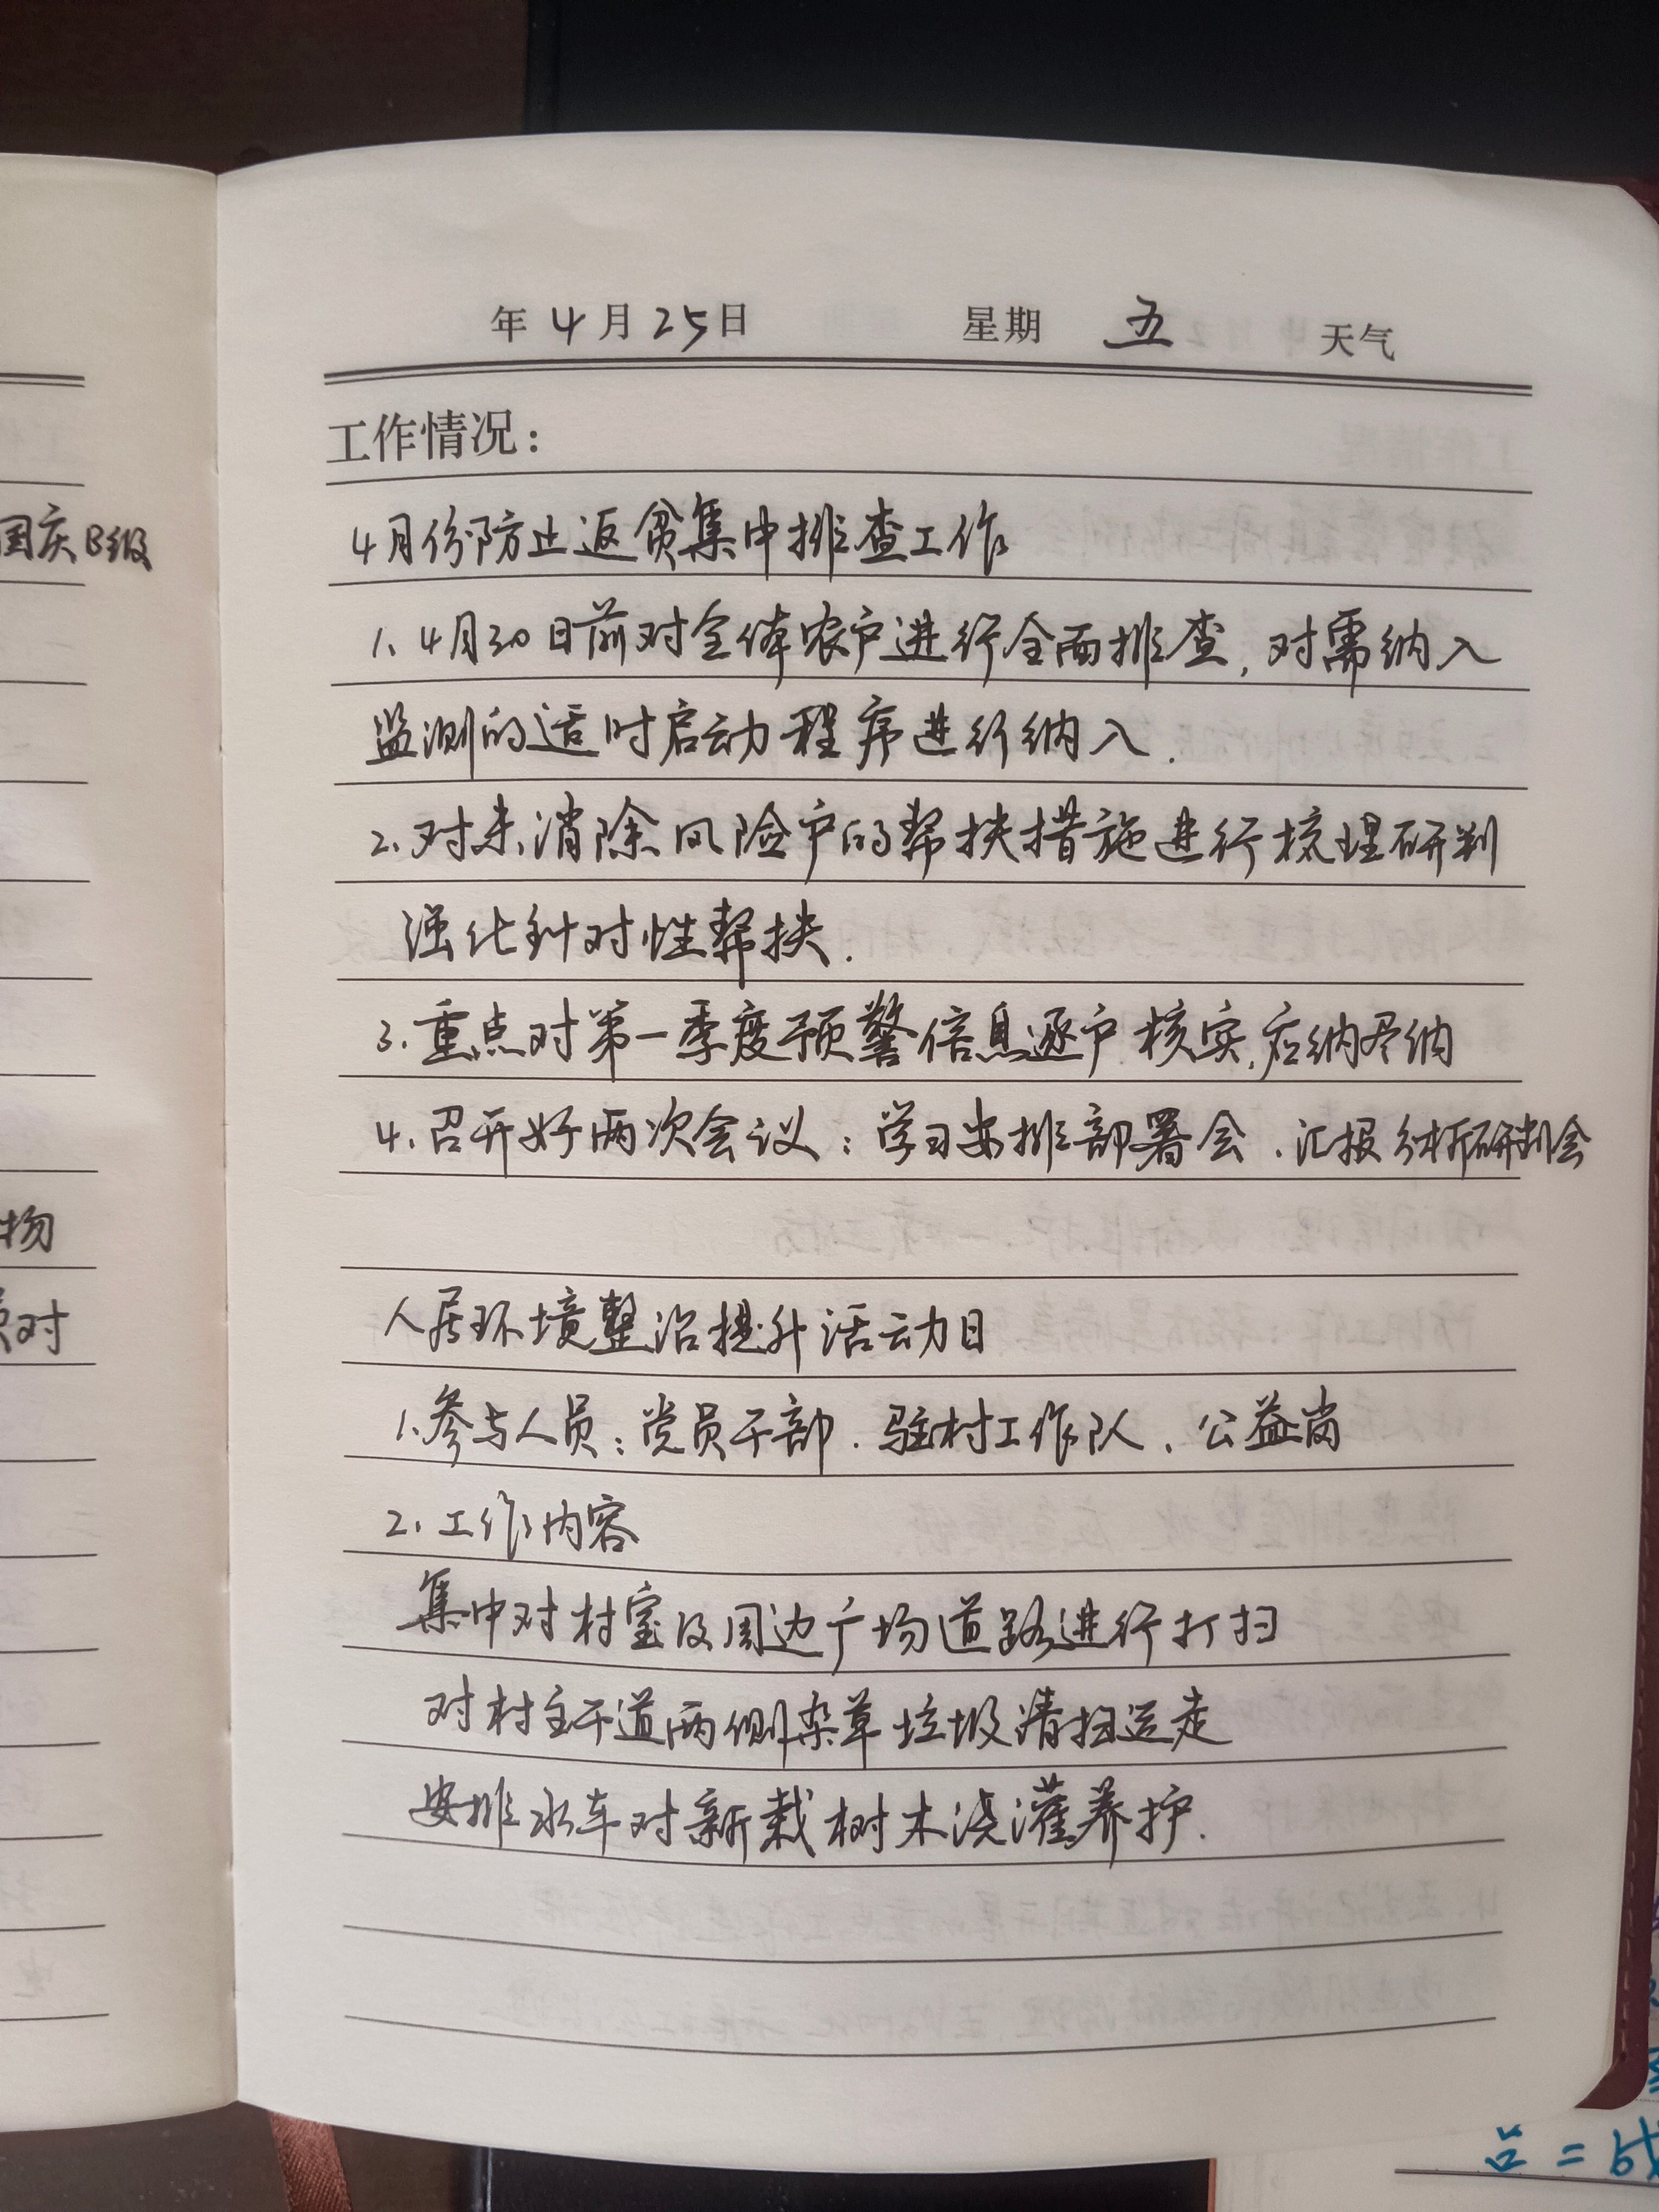 国庆B级
物
对
年 4 月 25 日 星期 五 天气
工作情况：
4月份防止返贫集中排查工作
1、4月30日前对全体农户进行全面排查，对需纳入
监测的适时启动程序进行纳入.
2、对未消除风险户的帮扶措施进行梳理研判
强化针对性帮扶.
3.重点对第一季度预警信息逐户核实,应纳尽纳
4、召开好两次会议：学习安排部署会、汇报分析研判会
人居环境整治提升活动日
1、参与人员：党员干部、驻村工作队、公益岗
2、工作内容
集中对村室及周边广场道路进行打扫
对村主干道两侧杂草垃圾清扫运走
安排水车对新栽树木浇灌养护.